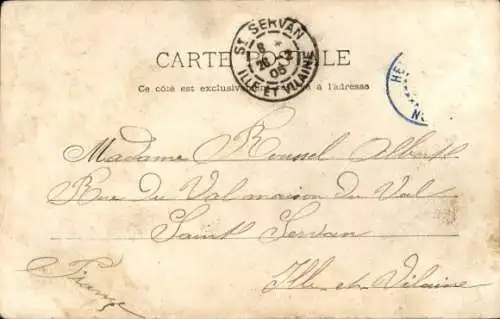 CARTE POSTALE
Ce côté est exclusivement réservé à l'adresse
ST SERVAN
6
26 -2
05
ILLE ET VILAINE
HE
Madame Roussel Albert
Rue du Val maison du Val
Saint Servan
Ille et Vilaine
France